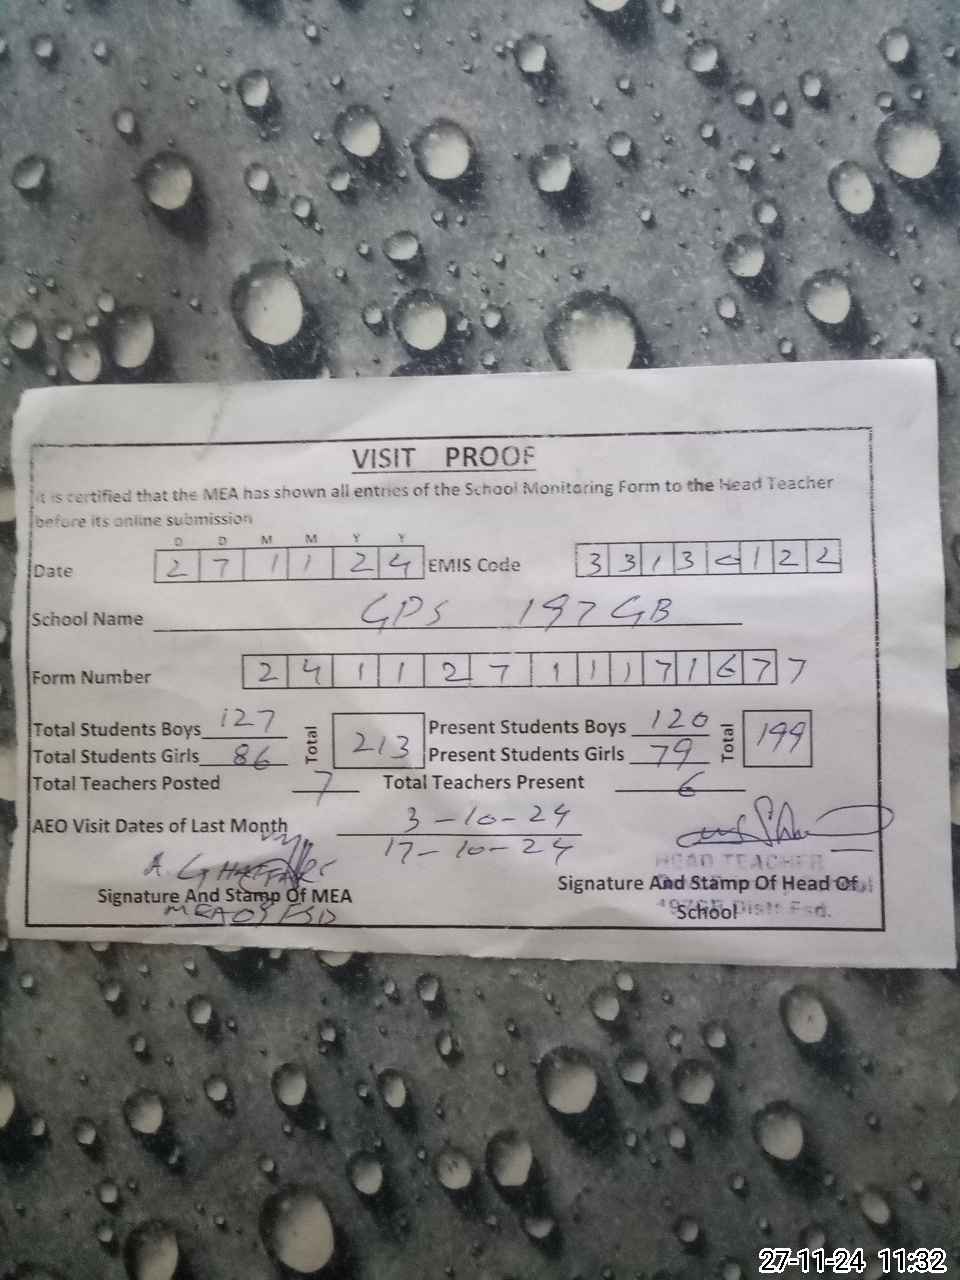 VISIT PROOF
It is certified that the MEA has shown all entries of the School Monitoring Form to the Head Teacher
before its online submission
D D M M Y Y
Date 2 7 1 1 2 4 EMIS Code 3 3 1 3 0 1 2 2
School Name GPS 197 GB
Form Number 2 4 1 1 2 7 1 1 1 7 1 6 7 7
Total Students Boys 127 Total 213 Present Students Boys 120 Total 199
Total Students Girls 86 Present Students Girls 79
Total Teachers Posted 7 Total Teachers Present 6
AEO Visit Dates of Last Month 3-10-24
17-10-24
A. GHAFFAR
HEAD TEACHER
Signature And Stamp Of MEA Signature And Stamp Of Head Of
MEA 05 FSD School 197GB Distt Fsd.
27-11-24 11:32